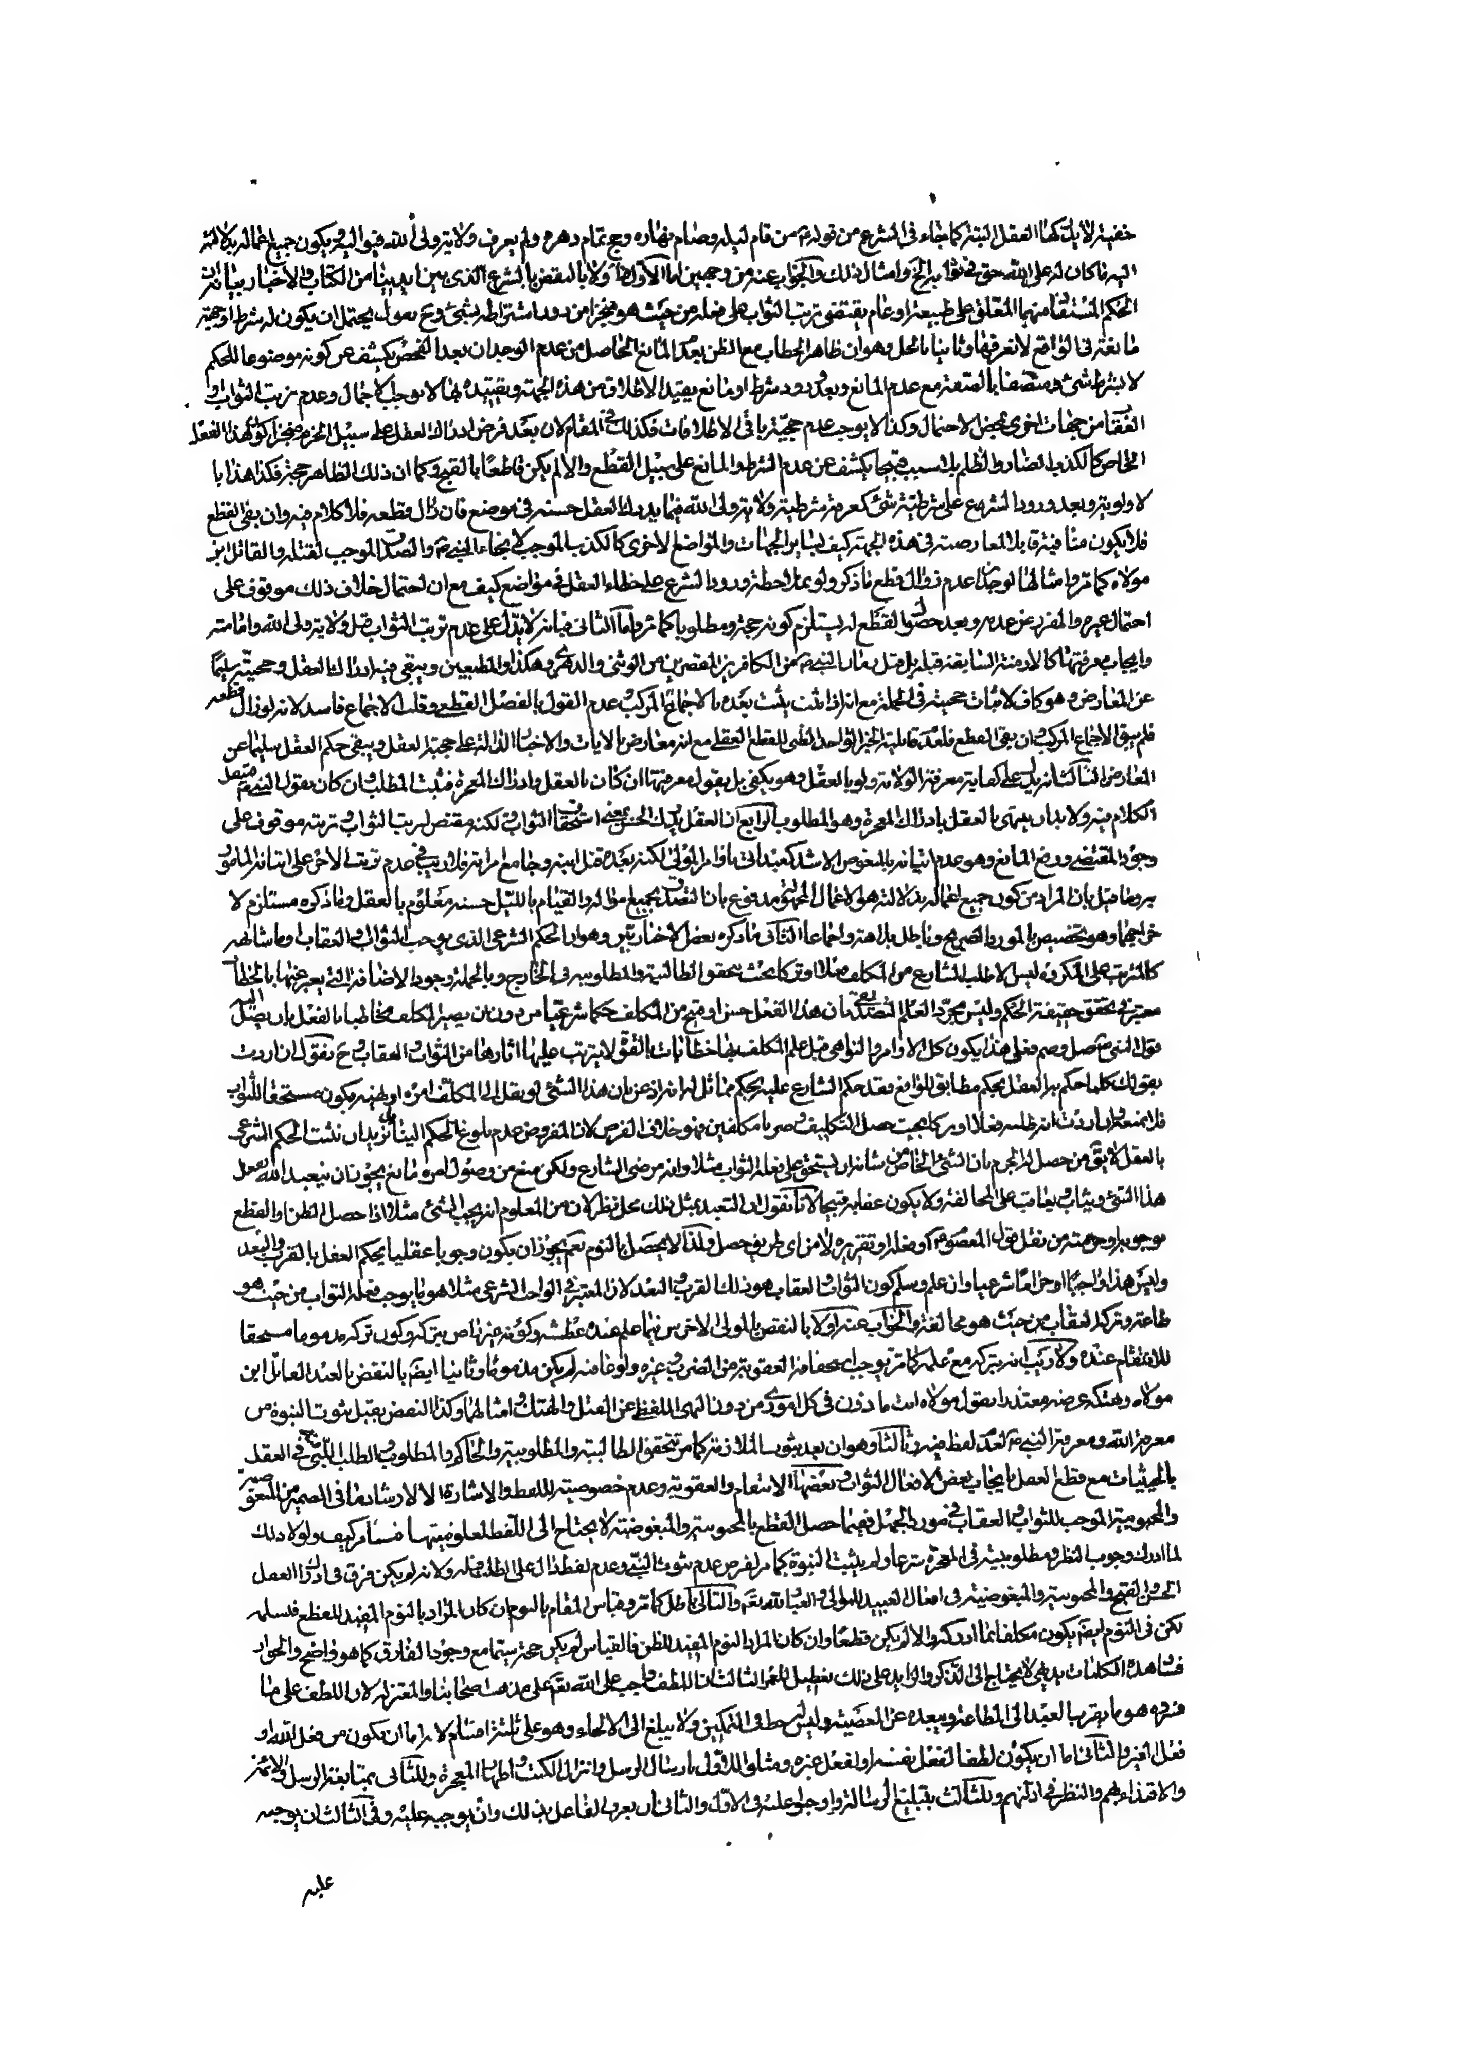 خفية لا يدركها العقل البتة كما جاء في الشرع من قوله من قام ليله وصام نهاره وحج تمام دهره ولم يعرف ولاية ولي الله فيواليه ويكون جميع اعماله بدلالته
اليه ما كان له على الله حق في ثوابه الخ وامثال ذلك والجواب عنه من وجهين اما الأول فاولا بالنقض بالشرع الذي بين ايدينا من الكتاب والاخبار بيانه ان
الحكم المستفاد منهما المعلق على طبيعة او عام يقتضي ترتب الثواب على فعله من حيث هو منجزا من دون اشتراطه بشيء وح نقول يحتمل ان يكون له شرط او جهة
مانعة في الواقع لا نعرفها وثانيا بالحل وهو ان ظاهر الخطاب مع الظن بعدم المانع الحاصل من عدم الوجدان بعد الفحص يكشف عن كونه موضوعا للحكم
لا بشرط شيء ومتصفا بالصفة مع عدم المانع وبعد ورود شرط او مانع يقيد الاطلاق من هذه الجهة وتقييده بها لا يوجب الاجمال وعدم ترتب الثواب و
العقاب من جهات اخرى بمحض الاحتمال وكذا لا يوجب عدم حجية باقي الاطلاقات فكذلك في المقام لان بعد فرض ادراك العقل على سبيل الجزم منجزا كون هذا الفعل
الخاص كالكذب الضار والظلم بلا سبب قبيحا يكشف عن عدم الشرط والمانع على سبيل القطع والا لم يكن قاطعا بالقبح وكما ان ذلك الظاهر حجة فكذا هذا با
لاولوية وبعد ورود الشرع على شرطية شيء كمعرفة شرطية ولاية ولي الله فيما يدرك العقل حسنه في موضع فان زال قطعه فلا كلام فيه وان بقي القطع
فلا يكون منافية قابلا لمعارضته في هذه الجهة كيف لسائر الجهات والمواضع الاخرى كالكذب الموجب لانجاء النبي والصدق الموجب لقتله والقاتل ابن
مولاه كما مر وامثالها لوجدنا عدم زوال قطع ما ذكر ولو بملاحظة ورود الشرع على خطاء العقل في مواضع كيف مع ان احتمال خلاف ذلك موقوف على
احتمال غيره والمفروض عدمه وبعد حصول القطع له يستلزم كونه حجة ومطلوبا كما مر واما الثاني فبانه لا يدل على عدم ترتب الثواب قبل ولاية ولي الله وامامته
وايجاب معرفتها كالازمنة السابقة قبله بل قبل بعث النبي من الكافرين المقصرين من الوثني والدهري وهكذا والمطيعين ويبقى فيه ادراك العقل وحجيته سليما
عن المعارض وهو كاف لاثبات حجيته في الجملة مع انه اذا ثبت يثبت بعده بالاجماع المركب وعدم القول بالفصل القطعي وقلب الاجماع فاسد لانه لو زال قطعه
فلم يبق الاجماع المركب وان بقي القطع فلعدم قابلية الخبر الواحد الظني للقطع العقلي مع انه معارض بالآيات والاخبار الدالة على حجية العقل ويبقى حكم العقل سليما عن
المعارض الثالث انه يدل على كفاية معرفة الولاية ولو بالعقل وهو يكفي بل يقول معرفتها ان كان بالعقل وادراك المعجزة فثبت المطلب وان كان بقول النبي فينقل
الكلام فيه ولا بد ان ينتهي بالعقل بادراك المعجزة وهو المطلوب الرابع ان العقل يدرك الحسن يعني استحقاق الثواب لكنه مقتض لترتب الثواب وترتبه موقوف على
وجود المقتضي ورفع المانع وهو عدم اتيانه بالمبغوض الاشد كعبد اتى باوامر المولى لكنه بعده قتل ابنه وجامع امرأته فلا ريب في عدم ترتب الاجر على اتيانه المأمور
به وما قيل بان المراد من كون جميع اعماله بدلالته هو الاعمال المجهولة مدفوع بان التصدق بجميع ماله والقيام بالليل حسنه معلوم بالعقل وما ذكره مستلزم لا
خراجهما وهو تخصيص بالمورد الصريح وباطل بداهة واجماعا الثاني ما ذكره بعض الاخباريين وهو ان الحكم الشرعي الذي يوجب الثواب والعقاب وما شابهه
كالترتب على المكروه ليس الا طلب الشارع من المكلف فعلا او تركا بحيث يتحقق الطالبية والمطلوبية في الخارج وبالجملة وجود الاضافة التي يعبر عنها بالخطاب
معتبر في تحقق حقيقة الحكم وليس مجرد العلم التصديقي بان هذا الفعل حسن او قبيح من المكلف حكما شرعيا من دون ان يصير المكلف مخاطبا بالفعل بان يصل اليه
قول النبي صل وصم فعلى هذا يكون كل الاوامر والنواهي قبل علم المكلف بها خطابات بالقوة لا يترتب عليها آثارها من الثواب والعقاب وح نقول ان اردت
بقولك كلما حكم به العقل يحكم مطابق للواقع فقد حكم الشارع عليه بحكم مماثل له انه اذعن بان هذا الشيء لو نقل الى المكلف امره او نهيه يكون مستحقا للثواب
فلا نمنعه وان اردت انه طلبه فعلا او تركا بحيث حصل التكليف وصرنا مكلفين فهو خلاف الفرض لان المفروض عدم بلوغ الحكم الينا بل نريد ان نثبت الحكم الشرعي
بالعقل لا يقال من حصل له الجزم بان الشيء الخاص من شأنه ان يستحق على فعله الثواب مثلا وانه مرضي الشارع ولكن منع من وصول امره مانع يجوز ان يتعبد الله بفعل
هذا الشيء ويثاب ويعاقب على المخالفة ولا يكون عقابه قبيحا لانا نقول ان التعبد بمثل ذلك محل نظر لان من المعلوم انه يجب الشيء مثلا اذا حصل الظن او القطع
بوجوبه او حرمته من نقل قول المعصوم او فعله او تقريره لا من اي طريق حصل ولذا لا يحصل بالنوم نعم يجوز ان يكون وجوبا عقليا يحكم العقل بالقرب والبعد
وليس هذا واجبا او حراما شرعيا وان علم وسلم كون الثواب والعقاب هو ذلك القرب والبعد لان المعتبر في الواجب الشرعي مثلا هو ما يوجب فعله الثواب من حيث هو
طاعة وتركه العقاب من حيث هو مخالفة والجواب عنه اولا بالنقض بالمولى الاخرس فيما علم عنده عطشه وكونه غير راض بتركه وكون تركه مذموما مستحقا
للانتقام عنده ولا ريب انه بتركه مع علمه كما مر يوجب استحقاقه العقوبة من الضرب وغيره ولو عاقبه لم يكن مذموما وثانيا ايضا بالنقض بالعبد القاتل ابن
مولاه وهتك عرضه معتذرا بقول مولاه انت مأذون في كل اموري من دون النهي اللفظي عن القتل والهتك وامثالهما وكذا النقض بقبل ثبوت النبوة من
معرفة الله ومعرفة النبي لعدم لفظ فيه وثالثا وهو ان بعد ثبوت الملازمة كما مر تتحقق الطالبية والمطلوبية والحاكم والمطلوب والطلب اللبي في العقل
بالحيثيات مع قطع العقل بايجاب بعض الافعال الثواب وبعضها الانتقام والعقوبة وعدم خصوصية للفظ والاشارة الا لارشادها في الضمير من المبغوضية
والمحبوبية الموجب للثواب والعقاب في مورد الجهل فبعد ما حصل القطع بالمحبوبية والمبغوضية لا يحتاج الى اللفظ لعلو رتبتها كيف ولولا ذلك
لما ادرك وجوب النظر ومطلوبيته في المعجزة شرعا ولم يثبت النبوة كما مر لفرض عدم ثبوت النبي وعدم لفظ دال على الطلب قبله ولانه لم يكن فرق في ادراك العقل
الحسن والقبح والمحبوبية والمبغوضية في افعال العبيد للموالي والعباد لله تعالى والتالي باطل كما مر وقياس المقام بالنوم ان كان المراد بالنوم المفيد للقطع فنسلمه
لكن في النوم ايضا يكون مكلفا بما ادركه والا لم يكن قطعا وان كان المراد النوم المفيد للظن فالقياس لم يكن حجة سيما مع وجود الفارق كما هو واضح والجواب
هذه الكلمات بديهي لا يحتاج الى الذكر والزايد على ذلك تعطيل للعمر الثالث ان اللطف واجب على الله تعالى على مذهب اصحابنا والمعتزلة لان اللطف على ما
فسروه هو ما يقرب العبد الى الطاعة ويبعده عن المعصية وليس له حظ في التمكين ولا يبلغ الى الالجاء وهو على ثلثة اقسام لانه اما ان يكون من فعل الله او
فعل الغير والثاني اما ان يكون لطفا لفعل نفسه او لفعل غيره ومثلوا للاول بارسال الرسل وانزال الكتب واظهار المعجزة وللثاني بمتابعة الرسل والائمة
والاقتداء بهم والنظر في ادلتهم وللثالث بتبليغ الرسالة واوجبوا عليه في الاول والثاني ان يعرف الفاعل بذلك وان يوجبه عليه وفي الثالث ان يوجبه
عليه